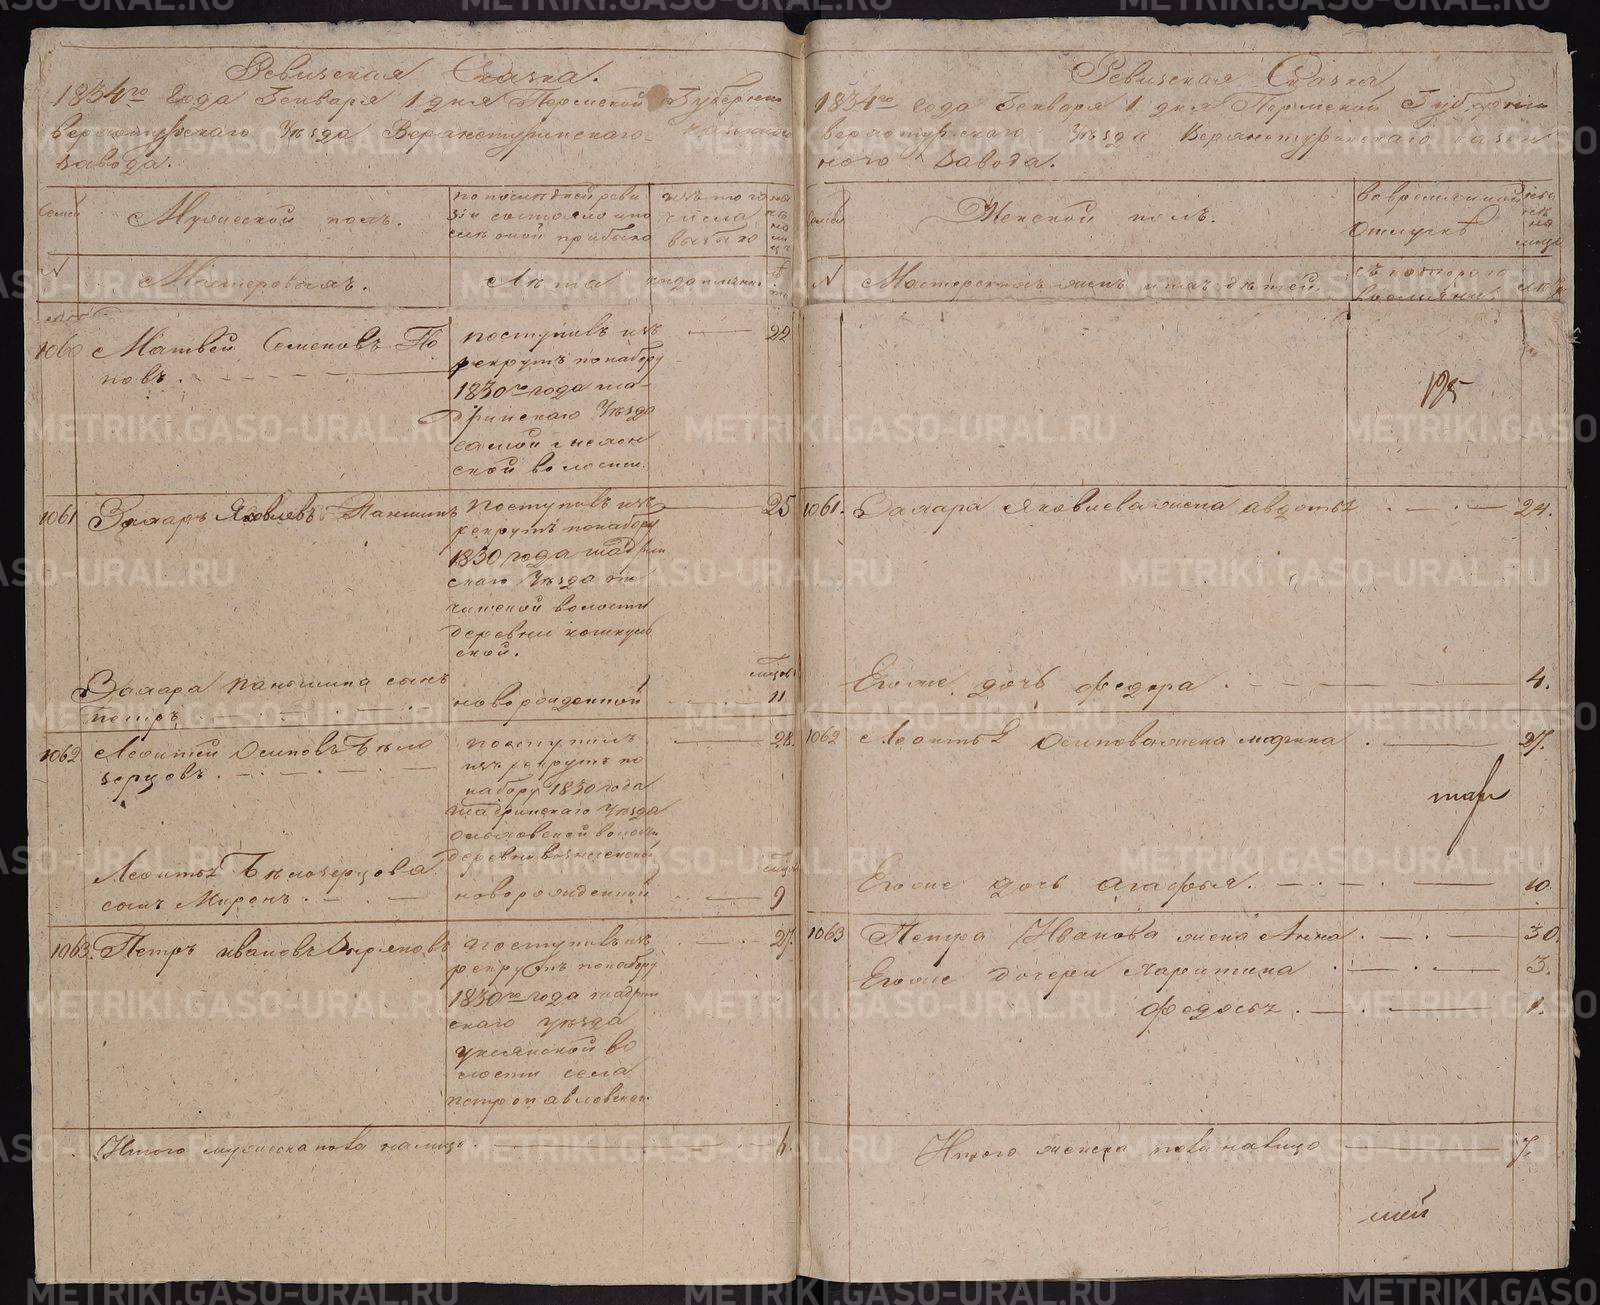 Ревизская Сказка.
1834го Года Генваря 1 дня Пермской Губернии
верхотурскаго Уезда Верхнетуринскаго казеннаго
Завода.
Семей
Мужеской полъ.
по последней реви
зіи состояло ипо
сле оной прибыло
изъ того
числа
выбыло
N
Мастеровыхъ.
Лета
когда именно
1060 Матвей Семеновъ По
повъ.
поступилъ изъ
рекрутъ по набору
1830го года ша
дринскаго Уезда
ской волости.
22
1061 Захаръ Яковлевъ Паншинъ
поступилъ изъ
рекрутъ понабору
1830 года шадрин
скаго Уезда те
ченской волости
деревни
ской.
25
Захара Паньшина сынъ
петръ
новорожденной
11
1062 Леонтей Осиповъ Бело
зерцовъ.
поступилъ
изъ рекрутъ по
набору 1830 года
шадринскаго Уезда
волости
деревни
28.
Леонтья Белозерцова
сынъ Миронъ.
новорожденной
9
1063. Петръ ивановъ Ширяповъ
поступилъ изъ
рекрутъ понабору
1830го года шадрин
скаго уезда
уксянской во
лости села
петропавловскаго.
27.
Итого мужеска пола налицо.
6.
Ревизская Сказка
1834го года Генваря 1 дня Пермской Губерніи
верхотурскаго Уезда Верхнетуринскаго казен
ного Завода.
Семей
Женской полъ.
во временной
отлучке
N
Мастерскихъ женъ ихъ детей.
съ котораго
времени
1061. Захара Яковлева жена авдотья 24.
Егоже дочь федора 4.
1062 Леонтья Осипова жена марина 27.
Егоже дочь агафья. 10
1063 Петра Иванова жена Анна 30.
Егоже дочери харитина 3.
федосья 1.
Итого женска пола налицо 7.
METRIKI.GASO-URAL.RU